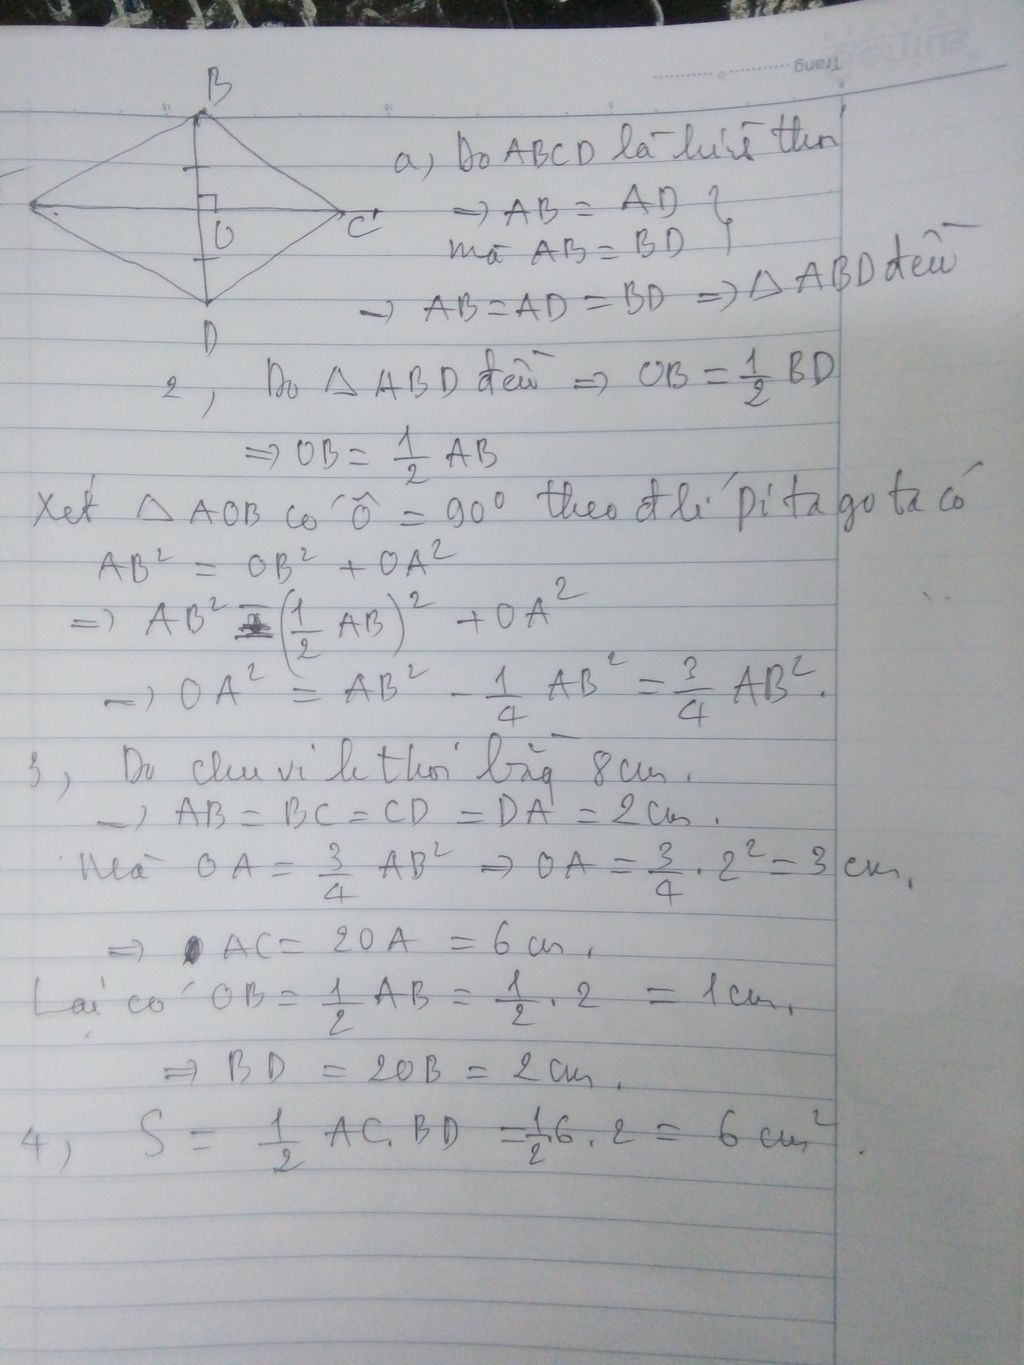 Trang
B
O
C
D
a, Do ABCD là hình thoi
=> AB = AD }
mà AB = BD }
=> AB = AD = BD => △ ABD đều
2, Do △ ABD đều => OB = 1/2 BD
=> OB = 1/2 AB
Xét △ AOB có Ô = 90° theo đ lí pi ta go ta có
AB² = OB² + OA²
=> AB² = (1/2 AB)² + OA²
=> OA² = AB² - 1/4 AB² = 3/4 AB².
3, Do chu vi h thoi bằg 8cm.
=> AB = BC = CD = DA = 2cm.
Mà OA = 3/4 AB² => OA = 3/4 . 2² = 3 cm.
=> AC = 2OA = 6 cm.
Lại có OB = 1/2 AB = 1/2 . 2 = 1cm.
=> BD = 2OB = 2cm.
4, S = 1/2 AC. BD = 1/2 6 . 2 = 6 cm².